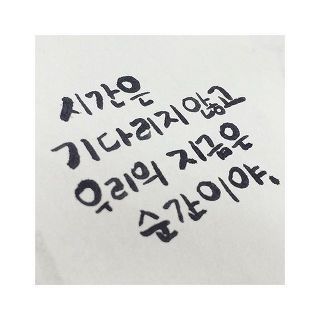 시간은
기다리지않고
우리의 지금은
순간이야.